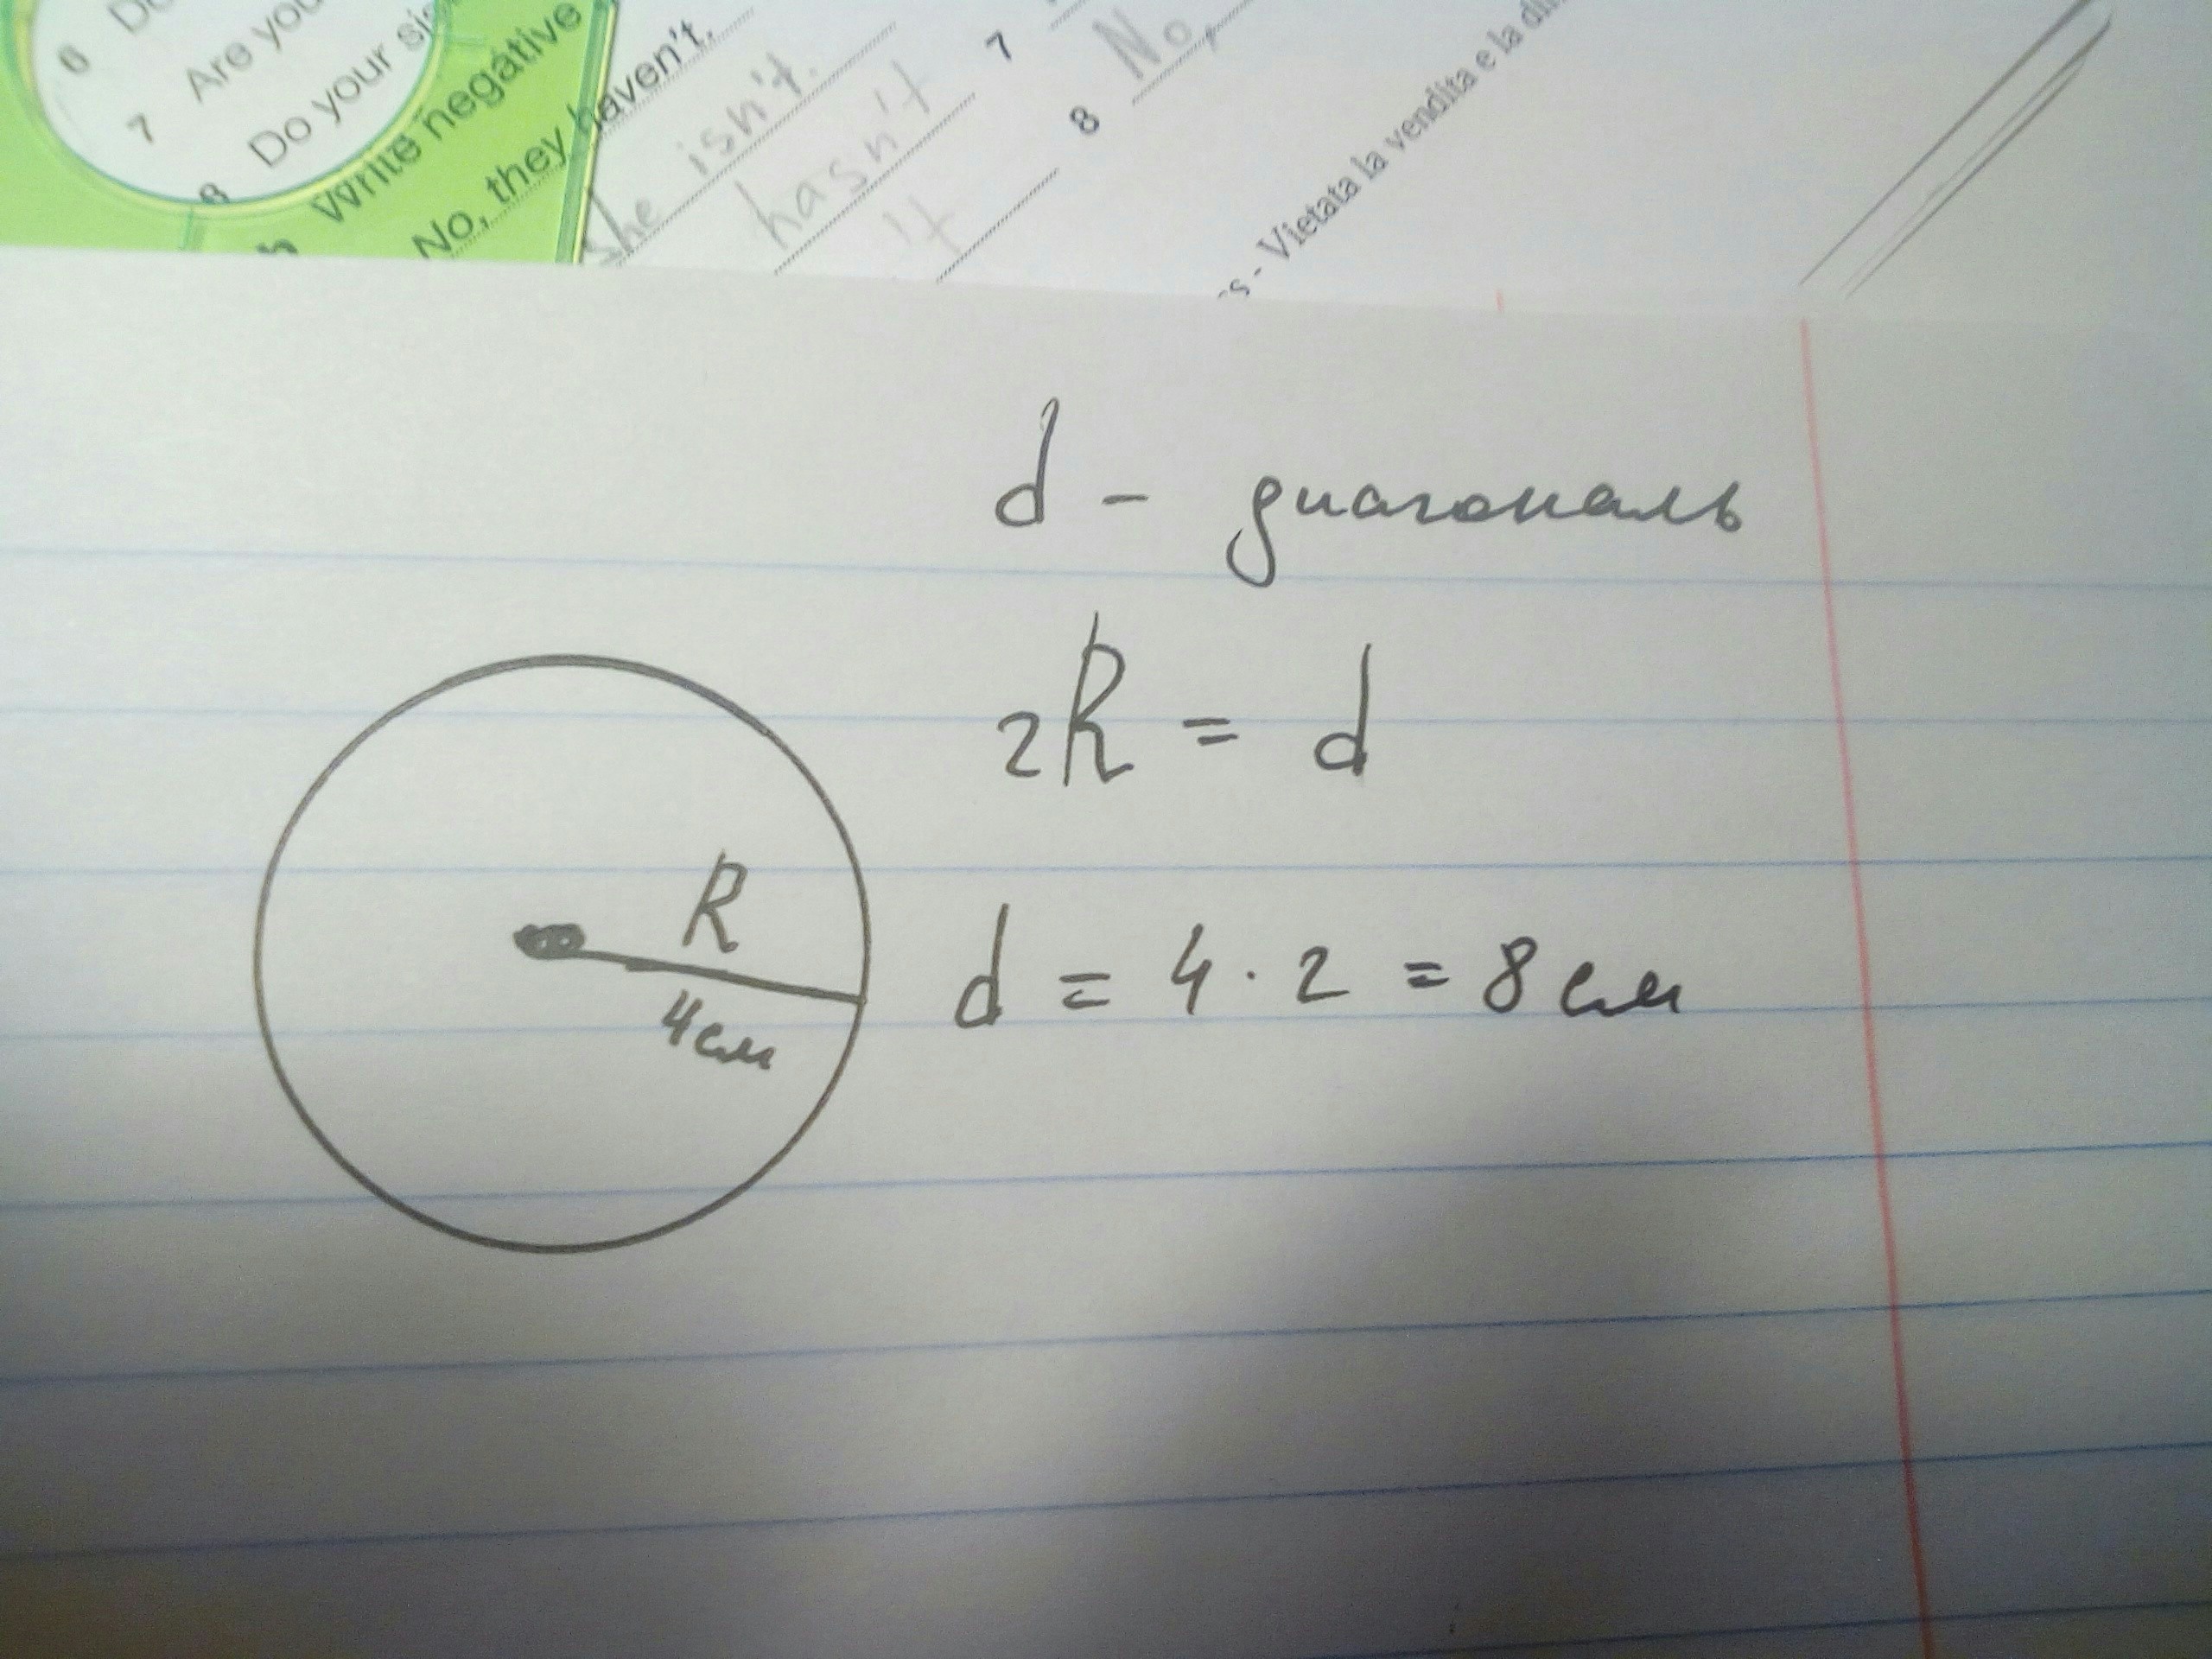 6
7 Are you
8 Do your
Write negative
No, they haven't.
She isn't.
hasn't
't
7
8 No,
- Vietata la vendita e la
d - диагональ
2R = d
R
4см
d = 4 · 2 = 8 см